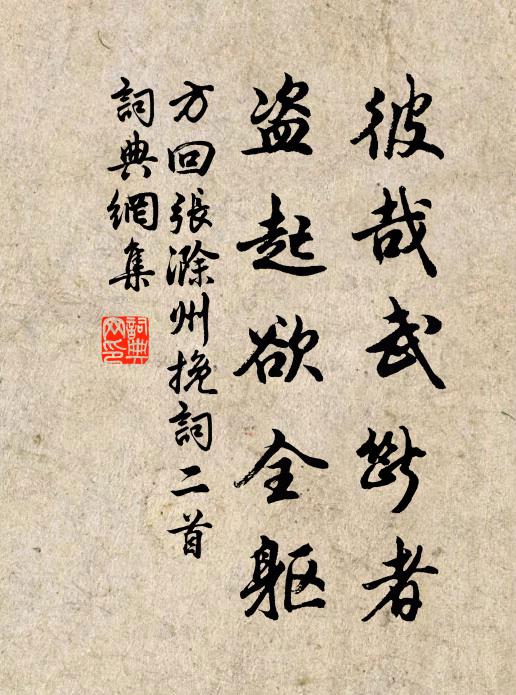 彼哉武斷者
盗起欲全軀
方回張滁州挽詞二首
詞典網集
詞典
网印